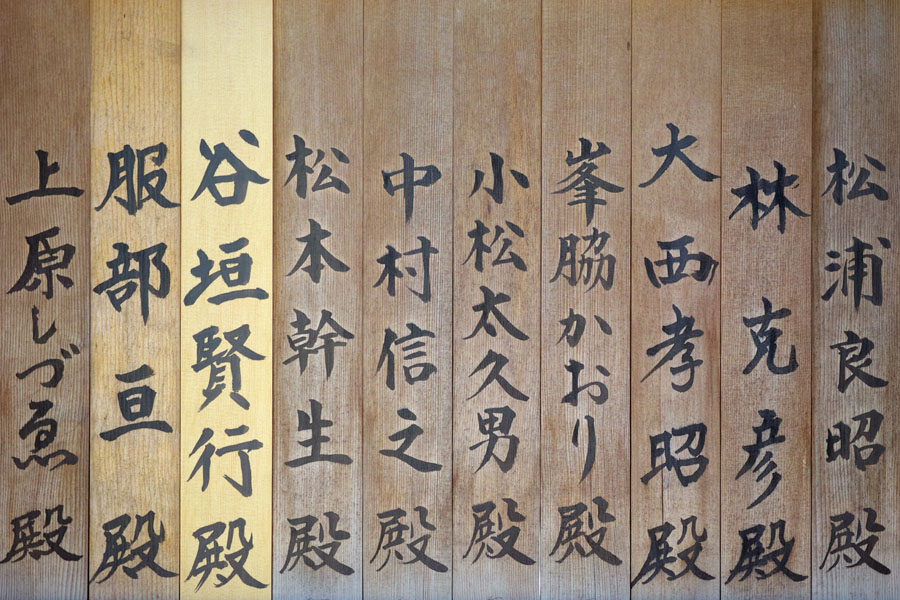 松浦良昭殿
林克彦殿
大西孝昭殿
峯脇かおり殿
小松太久男殿
中村信之殿
松本幹生殿
谷垣賢行殿
服部亘殿
上原しづゑ殿